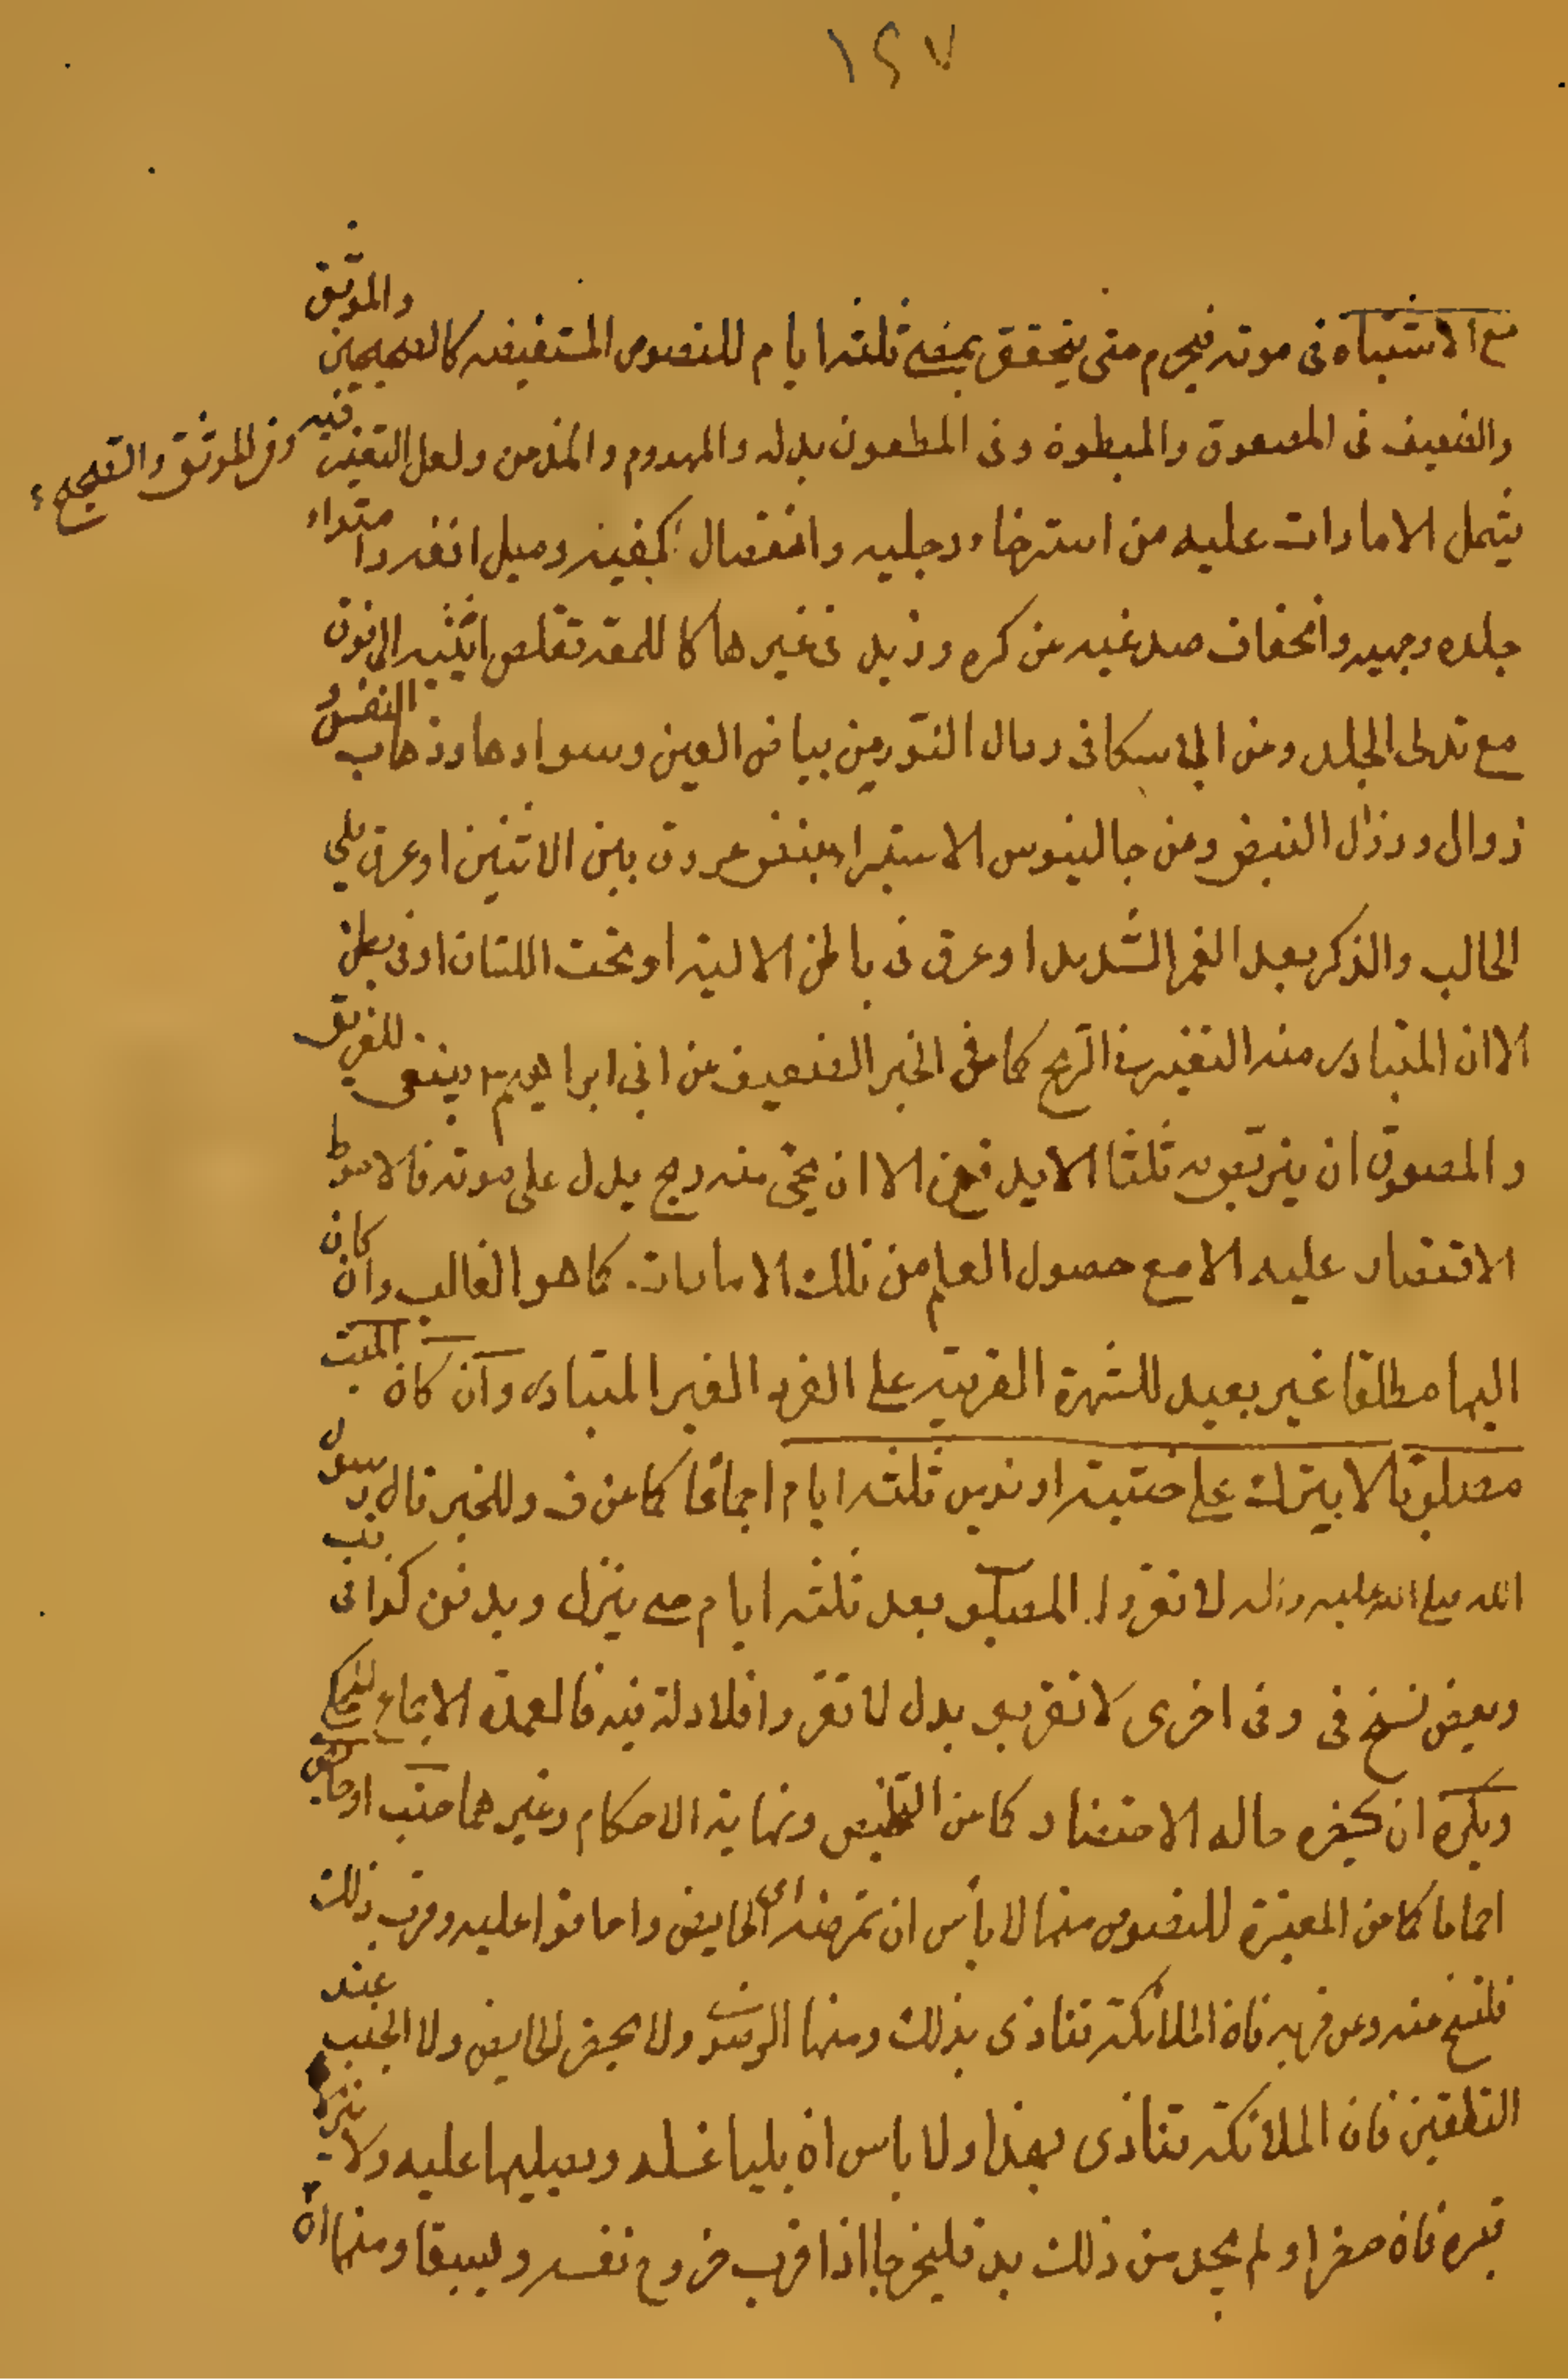 ١٢٧
مع الاشتباه فى موته فيحرم حتى يتحقق بمضى ثلثة ايام للنصوص المستفيضه كالصحيحين والموثق
والضعيف فى المصعوق والمبطون وفى المطعون بدله والمهدوم والمدخن ولعل التغير فيه وفى الموثق والصحيح
يشمل الامارات عليه من استرخاء رجليه وانفصال كفيه وميل انفه وامتداد
جلده وجهه وانخساف صدغيه عن كره وزيد فى غيرها كاللمعه تقلص انثييه الى فوق
مع تدلى الجلد وعن الاسكافى زوال النور من بياض العين وسوادها وذهاب النفس و
زوال النبض وعن جالينوس الاستبراء بنبض عروق بين الانثيين او عرق يلى
الحالب والذكر بعد الغمز الشديد او عرق فى باطن الالية او تحت اللسان او فى بطن
الا ان المتبادر منه التغير فى الريح كما فى الخبر الضعيف عن ابى ابراهيم ينبغى للغريق
والمصعوق ان يتربص به ثلثا لا يدفن الا ان يجئ منه ريح يدل على موته فالاحوط
الاقتصار عليه الا مع حصول العلم من تلك الامارات كما هو الغالب وان كان
اليها مطلقا غير بعيد للشهرة القرينة على الفرد الغير المتبادر وان كان الميت
مصلوبا لا يترك على خشبته ازيد من ثلثة ايام اجماعا كما عن ف وللخبر قال رسول
الله صلى الله عليه وآله لا تقروا المصلوب بعد ثلثه ايام حتى ينزل ويدفن كذا فى يب
وبعض نسخ فى وفى اخرى لا تقربوا بدل لا تقروا فلا دلالة فيه فالعمدة الاجماع المحكى
ويكره ان يحضره حاله الاحتضار كما عن التلخيص ونهاية الاحكام وغيرهما جنب او حائض
اجماعا كما عن المعتبرة للنصوص منها لا باس ان تمرضه اى الحايض واذا خافوا عليه وقرب ذلك
فلتنح عنه وعن قربه فان الملائكة تتاذى بذلك ومنها الرضوى ولا يحضر الحايض ولا الجنب عند
التلقين فان الملائكة تتاذى بهذا ولا باس ان يليا غسله ويصليا عليه ولا ينزلا
قبره فان حضرا ولم يجد من ذلك بد فليخرجا اذا قرب خروج نفسه ومنها ان